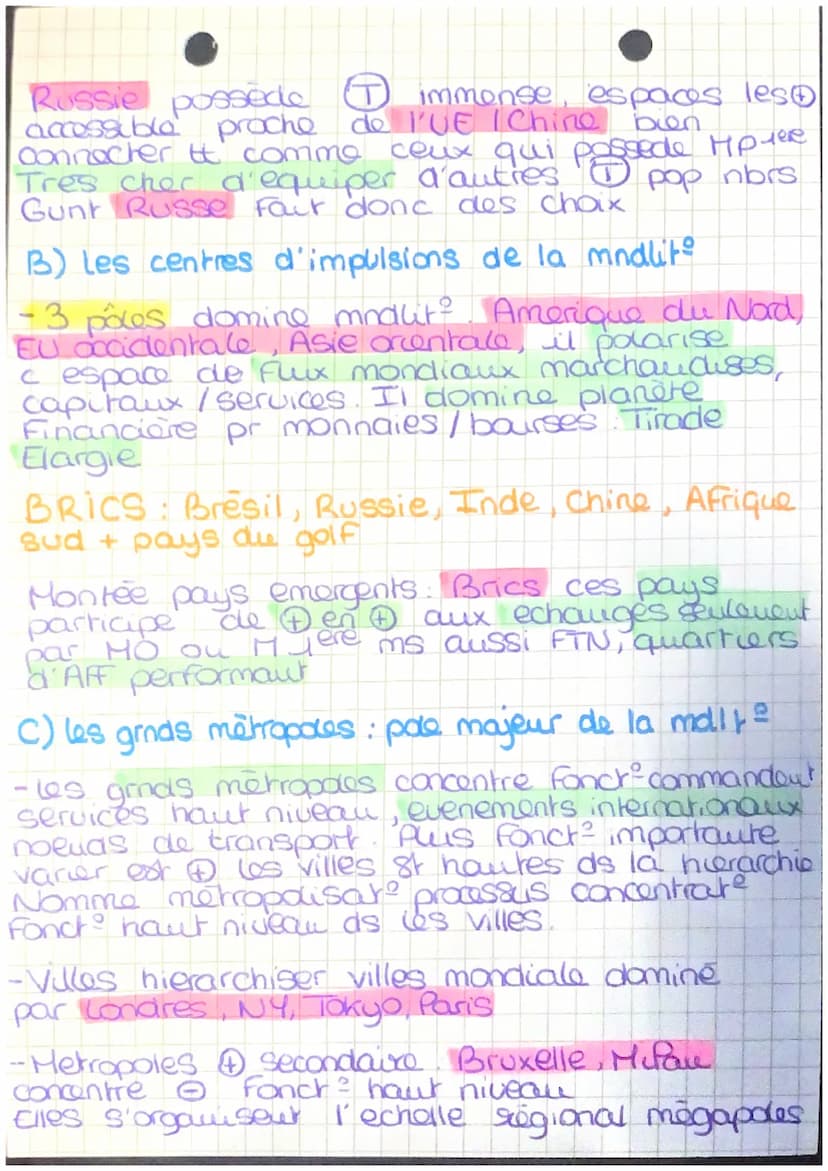 Russie possède Ⓣ immense, espaces les⊕
accessible proche de l'UE / Chine bien
connecter tt comme ceux qui possede MP 1ere
Tres cher d'equiper d'autres Ⓣ pop nbrs
Gvnt Russe Fait donc des choix
B) les centres d'impulsions de la mndlit°
- 3 pôles domine mndlit°. Amerique du Nord,
EU occidentale, Asie orientale, il polarise
c espace de flux mondiaux marchandises,
capitaux / services. Il domine planète
Financière pr monnaies / bourses. Tirade
Elargie
BRICS : Brésil, Russie, Inde, Chine, Afrique
sud + pays du golf
Montée pays emergents. Brics ces pays
participe de ⊕ en ⊕ aux echanges seulement
par MO ou M 1ere ms aussi FTN, quartiers
d'Aff performant
C) les grnds métropoles : pole majeur de la mdlt°
- les grnds métropoles concentre fonct° commandant
services haut niveau, evenements internationaux
noeuds de transport. Plus fonct° importante
varier est ⊕ les villes st hautes ds la hierarchie
Nomme métropolisat° processus concentrat°
Fonct° haut niveau ds les villes.
- Villes hierarchiser villes mondiale dominé
par Londres, NY, Tokyo, Paris
- Metropoles ⊕ secondaire. Bruxelle, Milan
concentre ⊖ fonct° haut niveau
Elles s'organisent l'echelle régional mégapoles